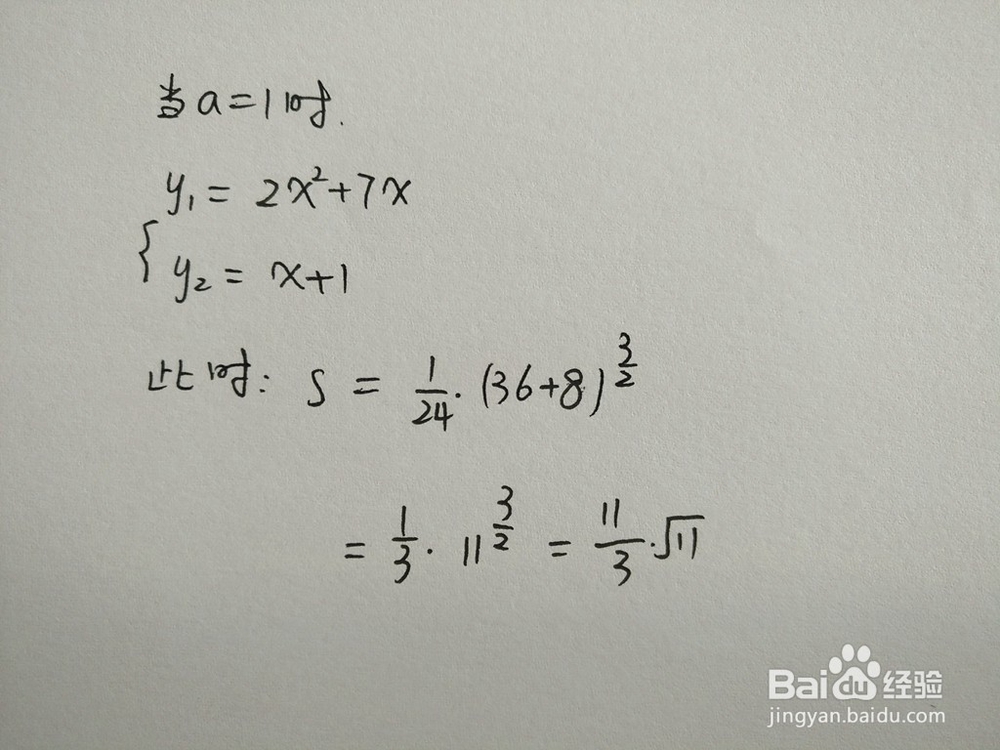 当a=1时.
y₁ = 2x²+7x
{ y₂ = x+1
此时: S = 1/24 · (36+8)^(3/2)
= 1/3 · 11^(3/2) = 11/3 · √11
Baidu经验
jingyan.baidu.com